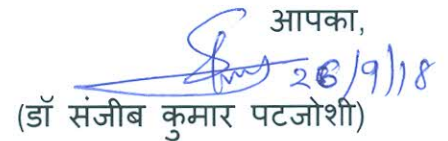 आपका,
26/9/18
(डॉ संजीब कुमार पटजोशी)